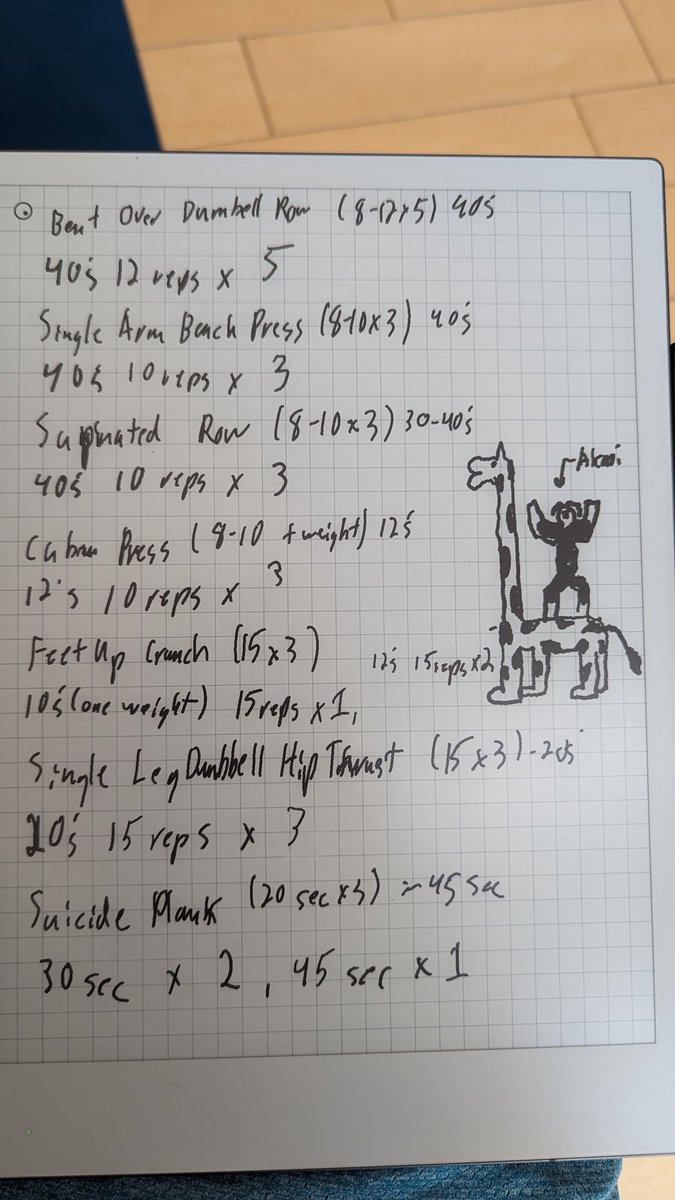 Bent Over Dumbell Row (8-12x5) 40's
40's 12 reps x 5
Single Arm Bench Press (8-10x3) 40's
40s 10 reps x 3
Supinated Row (8-10x3) 30-40's
40s 10 reps x 3
Cuban Press (8-10 + weight) 12's
12's 10 reps x 3
Feet Up Crunch (15x3)
12's 15 reps x 2
10's (one weight) 15 reps x 1,
Single Leg Dumbbell Hip Thrust (15x3)-20s
20's 15 reps x 3
Suicide Plank (20 sec x3) ~45 sec
30 sec x 2, 45 sec x 1